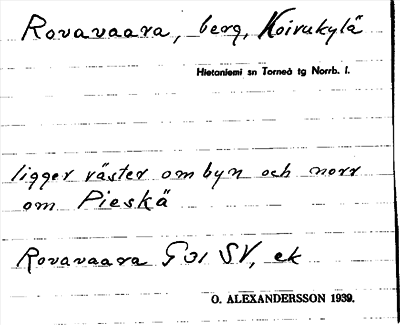 Rovavaara, berg, Koivukylä
Hietaniemi sn Torneå tg Norrb. l.
ligger väster om byn och norr
om Pieskä
Rovavaara 31 SV, ek
O. ALEXANDERSSON 1939.